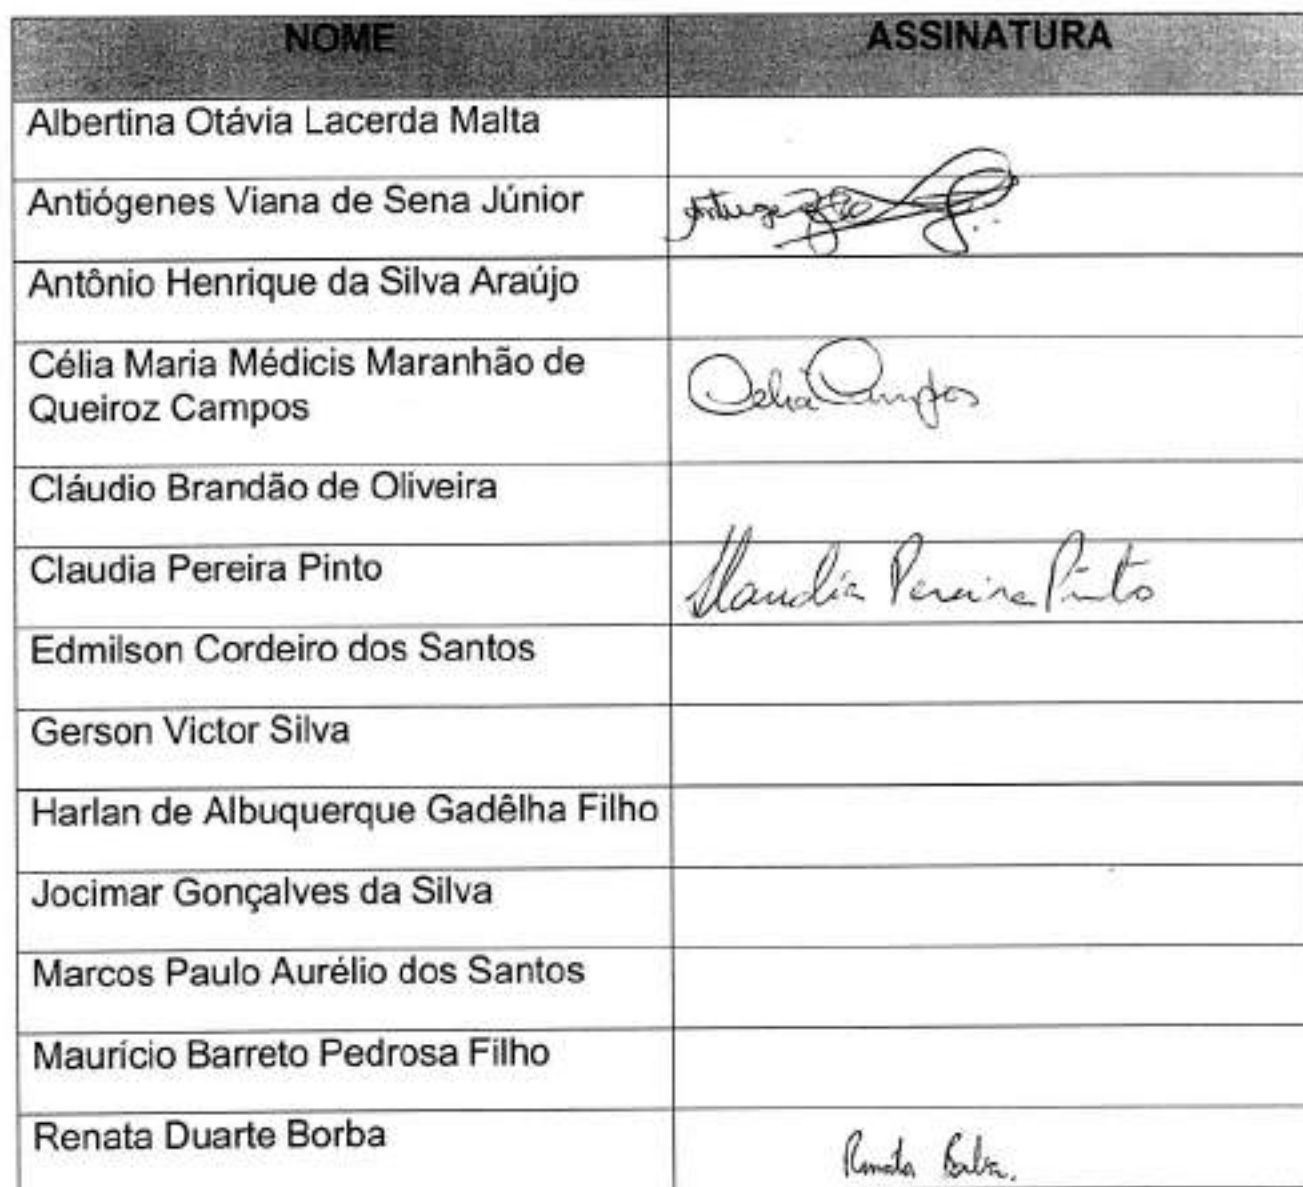 NOME ASSINATURA
Albertina Otávia Lacerda Malta
Antiógenes Viana de Sena Júnior
Antônio Henrique da Silva Araújo
Célia Maria Médicis Maranhão de
Queiroz Campos
Celia Campos
Cláudio Brandão de Oliveira
Claudia Pereira Pinto
Claudia Pereira Pinto
Edmilson Cordeiro dos Santos
Gerson Victor Silva
Harlan de Albuquerque Gadêlha Filho
Jocimar Gonçalves da Silva
Marcos Paulo Aurélio dos Santos
Maurício Barreto Pedrosa Filho
Renata Duarte Borba
Renata Borba.